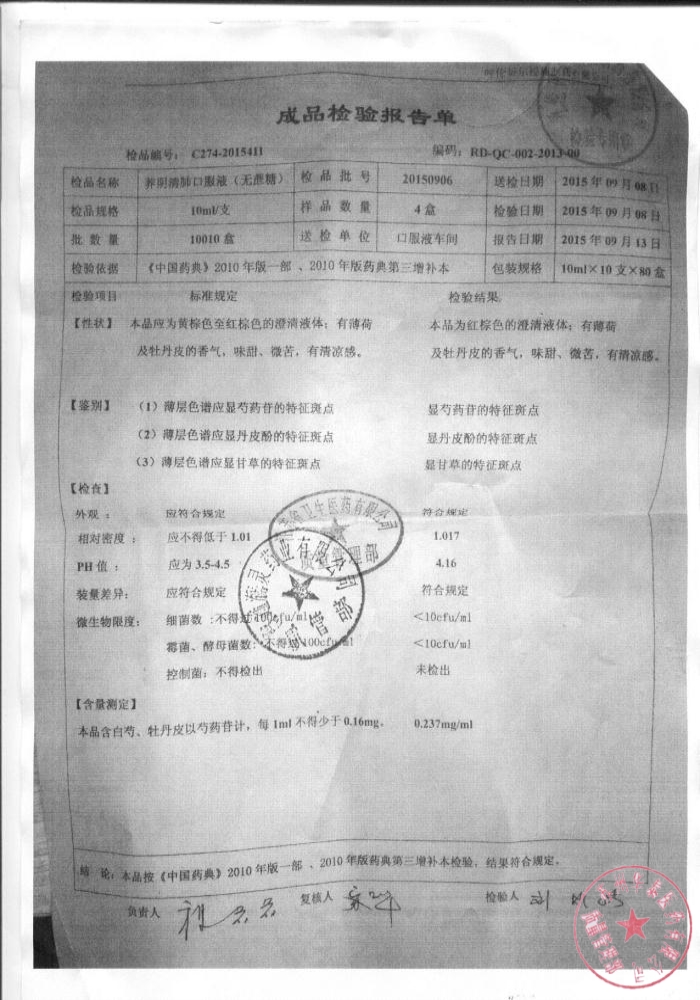 成品检验报告单
检品编号： C274-2015411 编码：RD-QC-002-2013-00
检品名称 养阴清肺口服液（无蔗糖） 检品批号 20150906 送检日期 2015年09月08日
检品规格 10ml/支 样品数量 4盒 检验日期 2015年09月08日
批数量 10010盒 送检单位 口服液车间 报告日期 2015年09月13日
检验依据 《中国药典》2010年版一部 、2010年版药典第三增补本 包装规格 10ml×10支×80盒
检验项目 标准规定 检验结果
【性状】 本品应为黄棕色至红棕色的澄清液体；有薄荷 本品为红棕色的澄清液体；有薄荷
及牡丹皮的香气，味甜、微苦，有清凉感。 及牡丹皮的香气，味甜、微苦，有清凉感。
【鉴别】 （1）薄层色谱应显芍药苷的特征斑点 显芍药苷的特征斑点
（2）薄层色谱应显丹皮酚的特征斑点 显丹皮酚的特征斑点
（3）薄层色谱应显甘草的特征斑点 显甘草的特征斑点
【检查】
外观 ： 应符合规定 符合规定
相对密度 ： 应不得低于1.01 1.017
PH值 ： 应为3.5-4.5 4.16
装量差异： 应符合规定 符合规定
微生物限度： 细菌数 ：不得过100cfu/ml <10cfu/ml
霉菌、酵母菌数：不得过100cfu/ml <10cfu/ml
控制菌：不得检出 未检出
【含量测定】
本品含白芍、牡丹皮以芍药苷计，每1ml不得少于0.16mg。 0.237mg/ml
结 论：本品按《中国药典》2010年版一部 、2010年版药典第三增补本检验，结果符合规定。
负责人 复核人 检验人